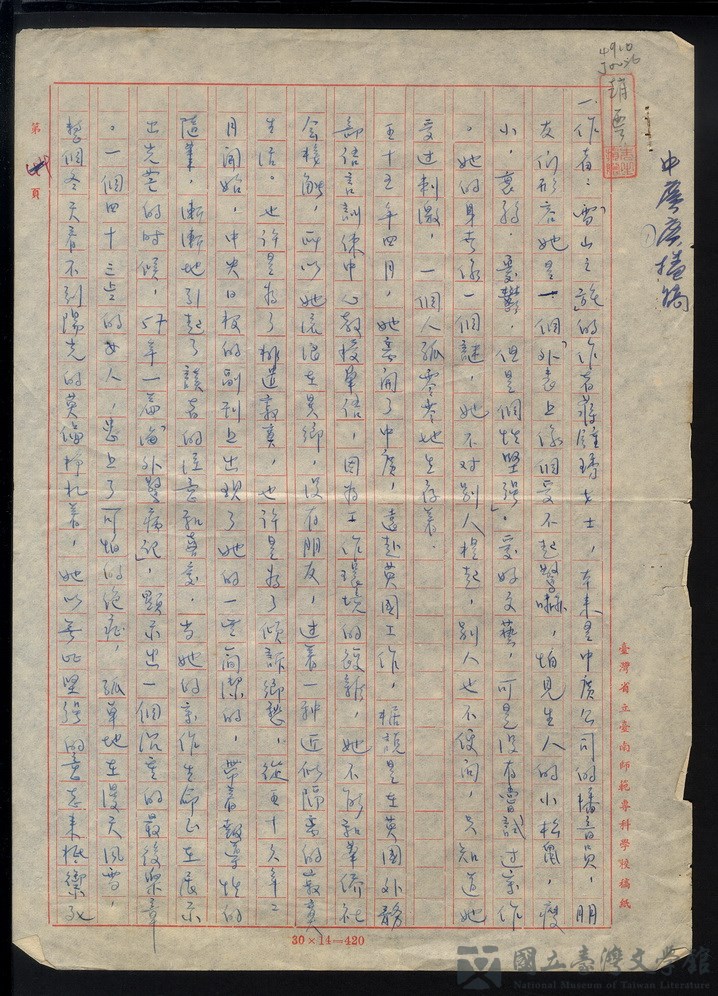 4910
趙雲
中廣廣播稿
一.作者：「雪山之旅」的作者蔣鍾琇女士，本來是中廣公司的播音員，朋
友们形容她是一個「外表上像個受不起驚嚇，怕見生人的小松鼠，瘦
小，衰弱，憂鬱，但是個性堅強」，愛好文藝，可是沒有嘗試过寫作
。她的身世像一個謎，她不对別人提起，別人也不便问，只知道她
受过刺激，一個人孤零零地生存着。
五十五年四月，她离開了中廣，遠赴英國工作，据說是在英國外務
部语言訓练中心教授華语，因為工作環境的複雜，她不能和華僑社
会接触，所以她流浪在異鄉，沒有朋友，过着一种近似隔离的寂寞
生活。也许是為了排遣寂寞，也许是為了傾訴鄉愁，從五十六年二
月開始，中央日报的副刊上出現了她的一些简潔的，帶着報導性的
随筆，漸漸地引起了讀者的注意和喜愛，当她的寫作生命正在展示
出光芒的时候，57年一篇「海外臥病記」，顯示出一個沉重的最後樂章
。一個四十三歲的女人，患上了可怕的绝症，孤單地在漫天風雪，
整個冬天看不到陽光的英倫掙扎着，她以無比堅强的意志来抵禦死
第 頁
臺灣省立臺南師範專科學校稿紙
30×14=420
國立臺灣文學館
National Museum of Taiwan Literature